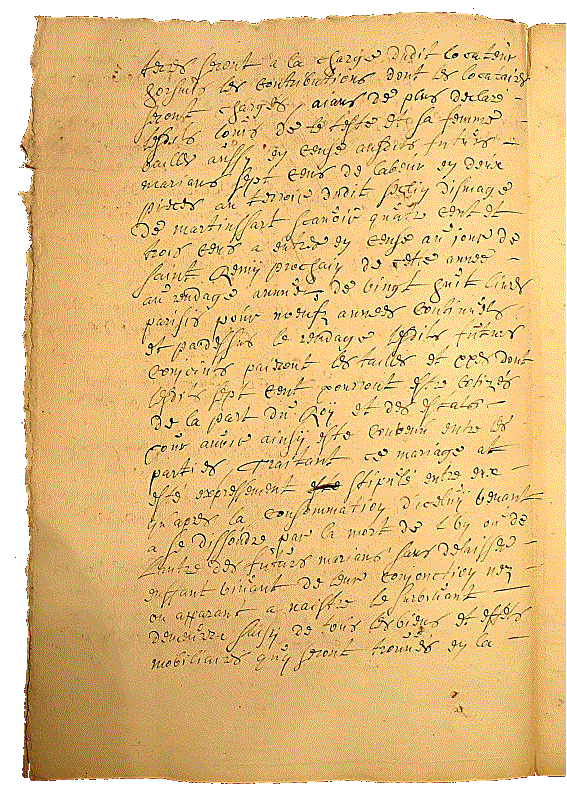 terres seront a la charge dudit locateur
horsmis les contributions dont les locataires
seront charges, aians de plus declaré
lesdits louis de le teste et sa femme
bailler aussy en cense ausdits futurs
marians sept cens de labeur en deux
pieces au terroir dudit seclin dismage
de martinssart scavoir quatre cent et
trois cens a entrer en cense au jour de
saint Remy prochain de cette année
au rendage annuel de vingt huit livres
parisis pour noeuf années continuels
et pardessus le rendage lesdits futurs
conjoints paieront les tailles et xxes dont
lesdits sept cent pourront estre cotisés
de la part du Roy et des estats
ainsy este convenu entre les
parties, Traitant ce mariage at
esté expressement stipulé entre eux
qu'apres la consommation d'iceluy venant
a se dissoudre par la mort de l'un ou de
l'autre des futurs marians sans delaisser
enffant vivant de leur conjonction nez
ou apparant a naistre le survivant
demeurra saisy de tous les biens et effets
mobiliaires quy seront trouvés en la